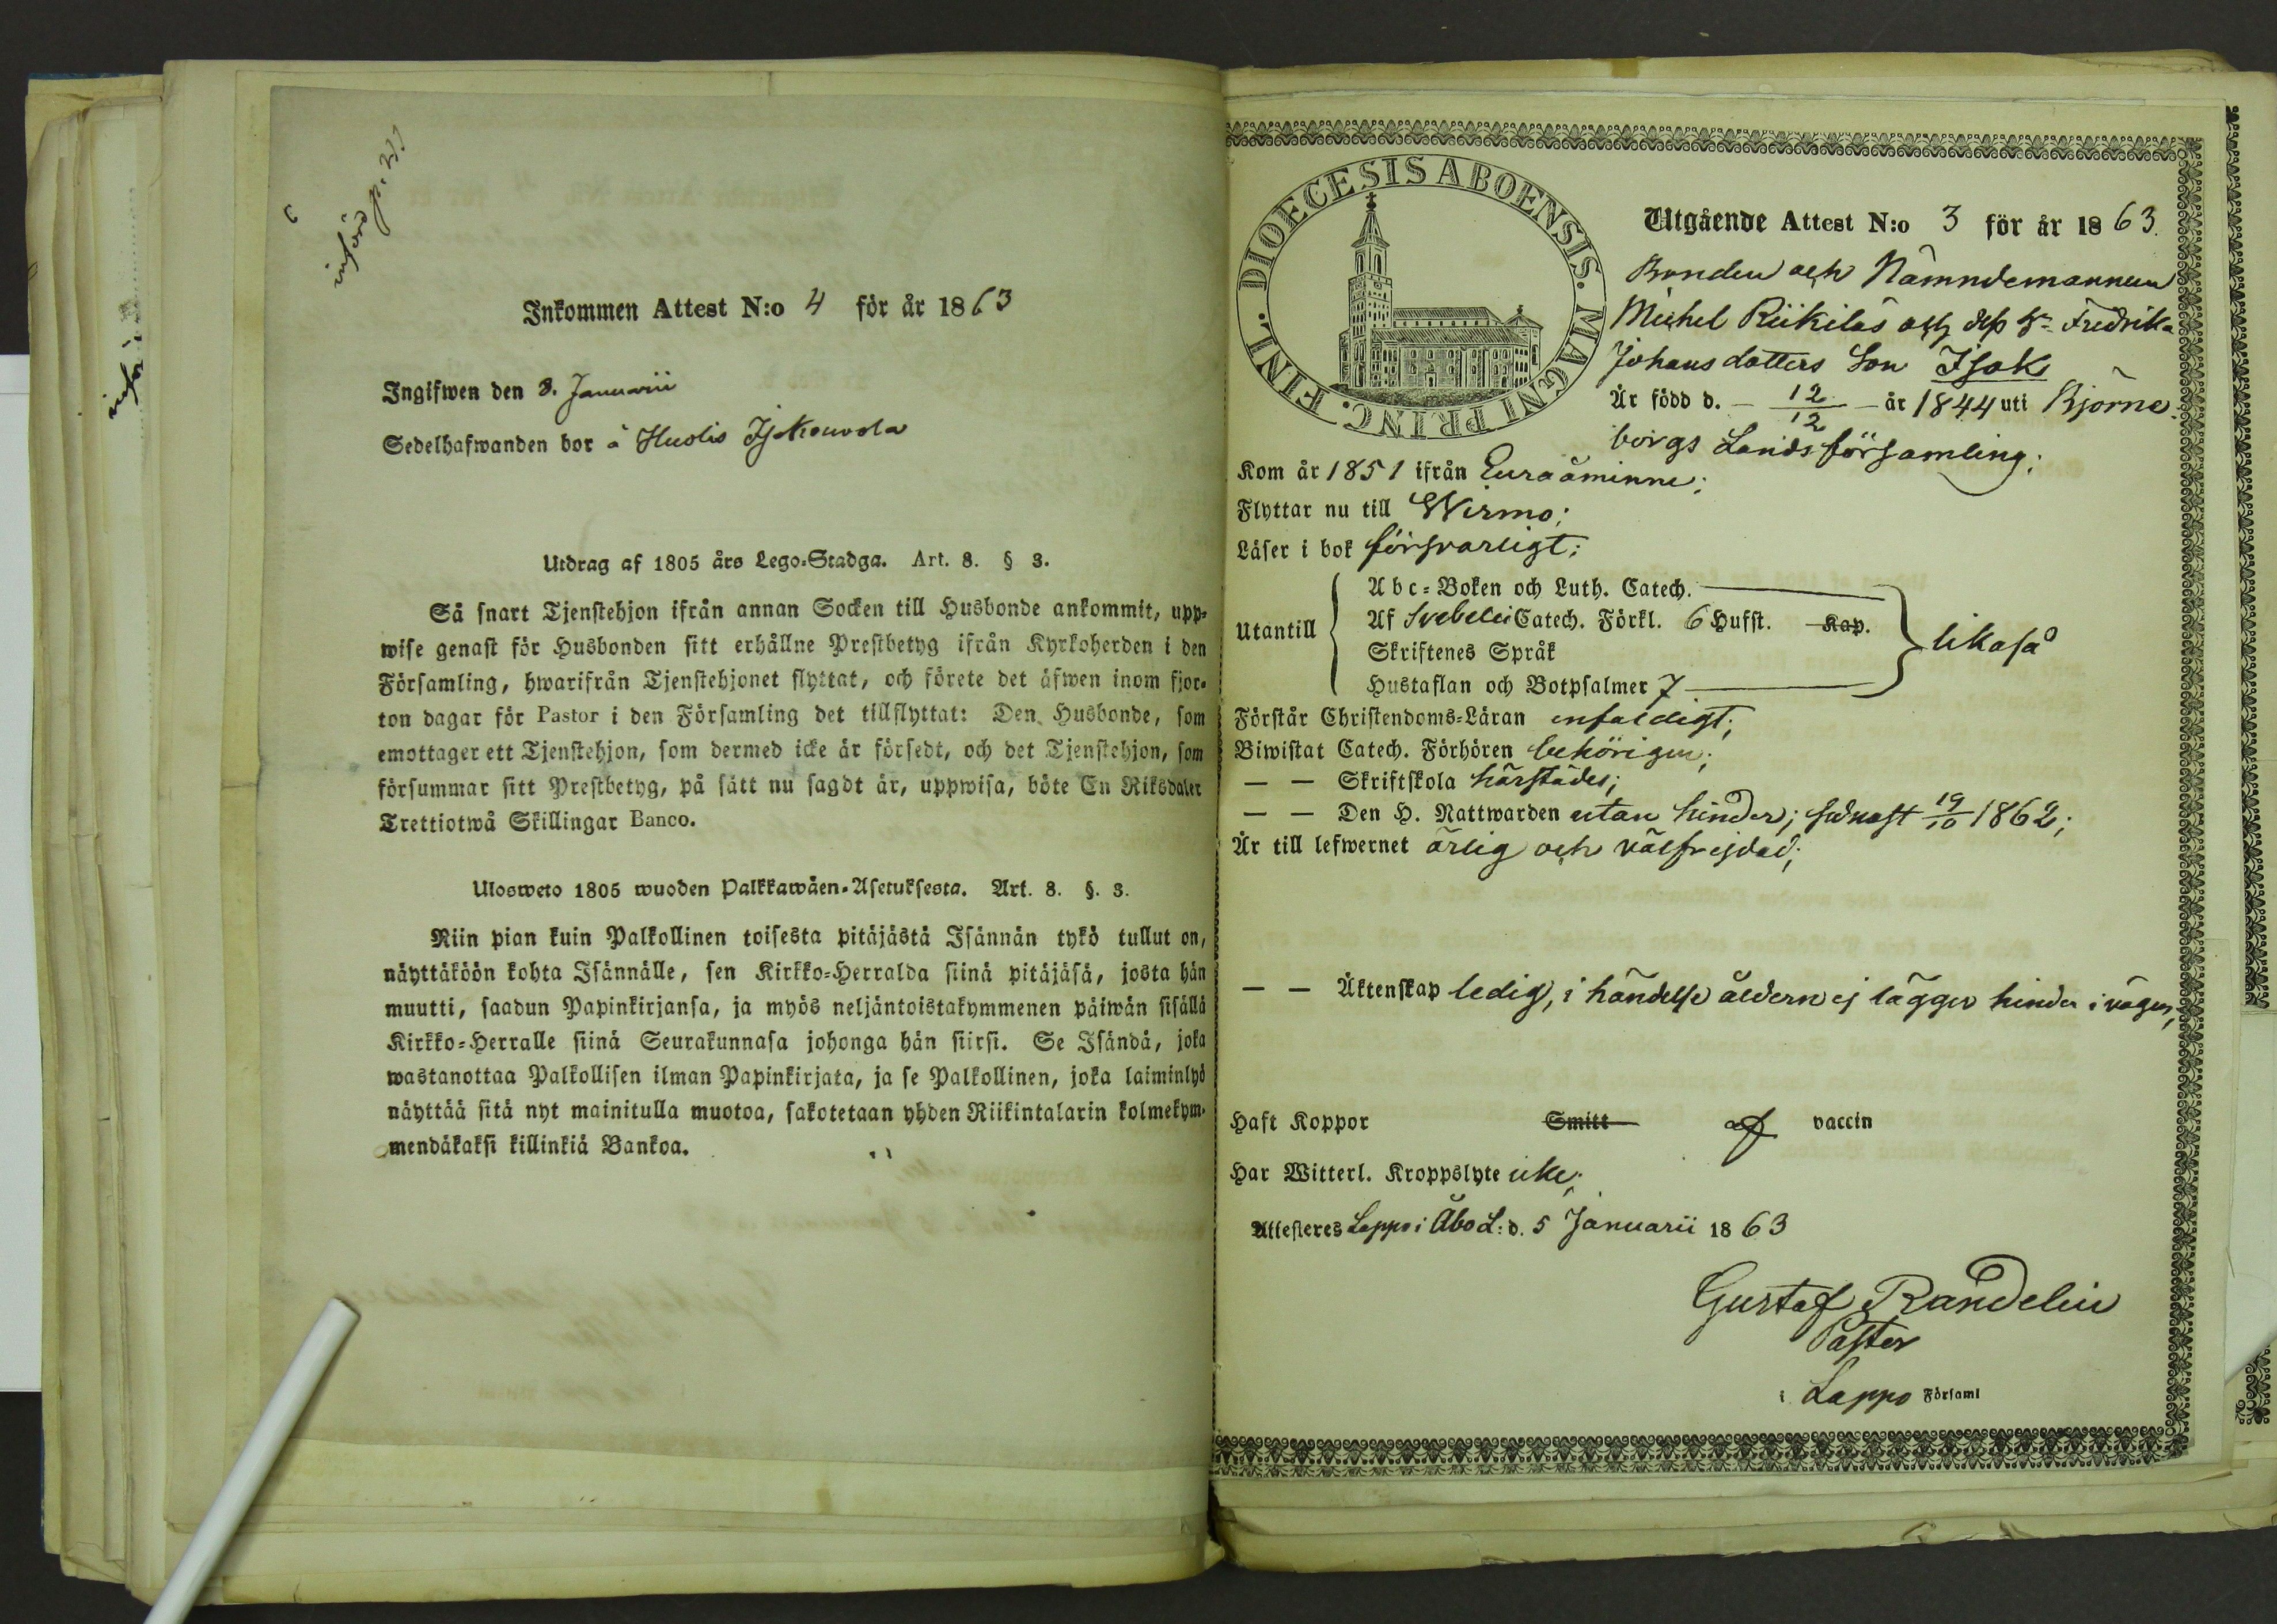 införd p. 21
Inkommen Attest N:o 4 för år 1863
Ingifwen den 8. Januarii
Sedelhafwanden bor å Huolis
Utdrag af 1805 års Lego-Stadga. Art. 8. § 3.
Så snart Tjenstehjon ifrån annan Socken till Husbonde ankommit, upp-
wise genast för Husbonden sitt erhållne Prestbetyg ifrån Kyrkoherden i den
Församling, hwarifrån Tjenstehjonet flyttat, och förete det äfwen inom fjor-
ton dagar för Pastor i den Församling det tillflyttat: Den Husbonde, som
emottager ett Tjenstehjon, som dermed icke är försedt, och det Tjenstehjon, som
försummar sitt Prestbetyg, på sätt nu sagdt är, uppwisa, böte En Riksdaler
Trettiotwå Skillingar Banco.
Ulosweto 1805 wuoden Palkkawäen-Asetuksesta. Art. 8. §. 3.
Niin pian kuin Palkollinen toisesta pitäjästä Isännän tykö tullut on,
näyttäköön kohta Isännälle, sen Kirkko-Herralda siinä pitäjäsä, josta hän
muutti, saadun Papinkirjansa, ja myös neljäntoistakymmenen päiwän sisällä
Kirkko-Herralle siinä Seurakunnasa johonga hän siirsi. Se Isändä, joka
wastanottaa Palkollisen ilman Papinkirjata, ja se Palkollinen, joka laiminlyö
näyttää sitä nyt mainitulla muotoa, sakotetaan yhden Riikintalarin kolmekym-
mendäkaksi killinkiä Bankoa.
DIOECESIS ABOENSIS. MAGNI PRINC. FINL.
Utgående Attest N:o 3 för år 1863.
Bonden och Nämndemannen
Michel Riikilas och dess h. Fredrika
Johansdotters Son Isak
Är född d. — 12/12 — år 1844 uti Björne-
borgs Landsförsamling;
Kom år 1851 ifrån Euraåminne;
Flyttar nu till Wirmo;
Läser i bok försvarligt;
Abc-Boken och Luth. Catech.
Utantill Af Svebelii Catech. Förkl. 6 Hufst. Kap. likaså
Skriftenes Språk
Hustaflan och Botpsalmer 7
Förstår Christendoms-Läran enfaldigt;
Biwistat Catech. Förhören behörigen;
— — Skriftskola härstädes;
— — Den H. Nattwarden utan hinder; sednast 19/10 1862;
Är till lefwernet ärlig och välfrejdad;
— — Äktenskap ledig, i händelse åldern ej lägger hinder i vägen;
Haft Koppor Smitt af vaccin
Har Witterl. Kroppslyte icke;
Attesteres Lappo i Åbo L: d. 5 Januarii 1863
Gustaf Randelin
Pastor
i Lappo Församl